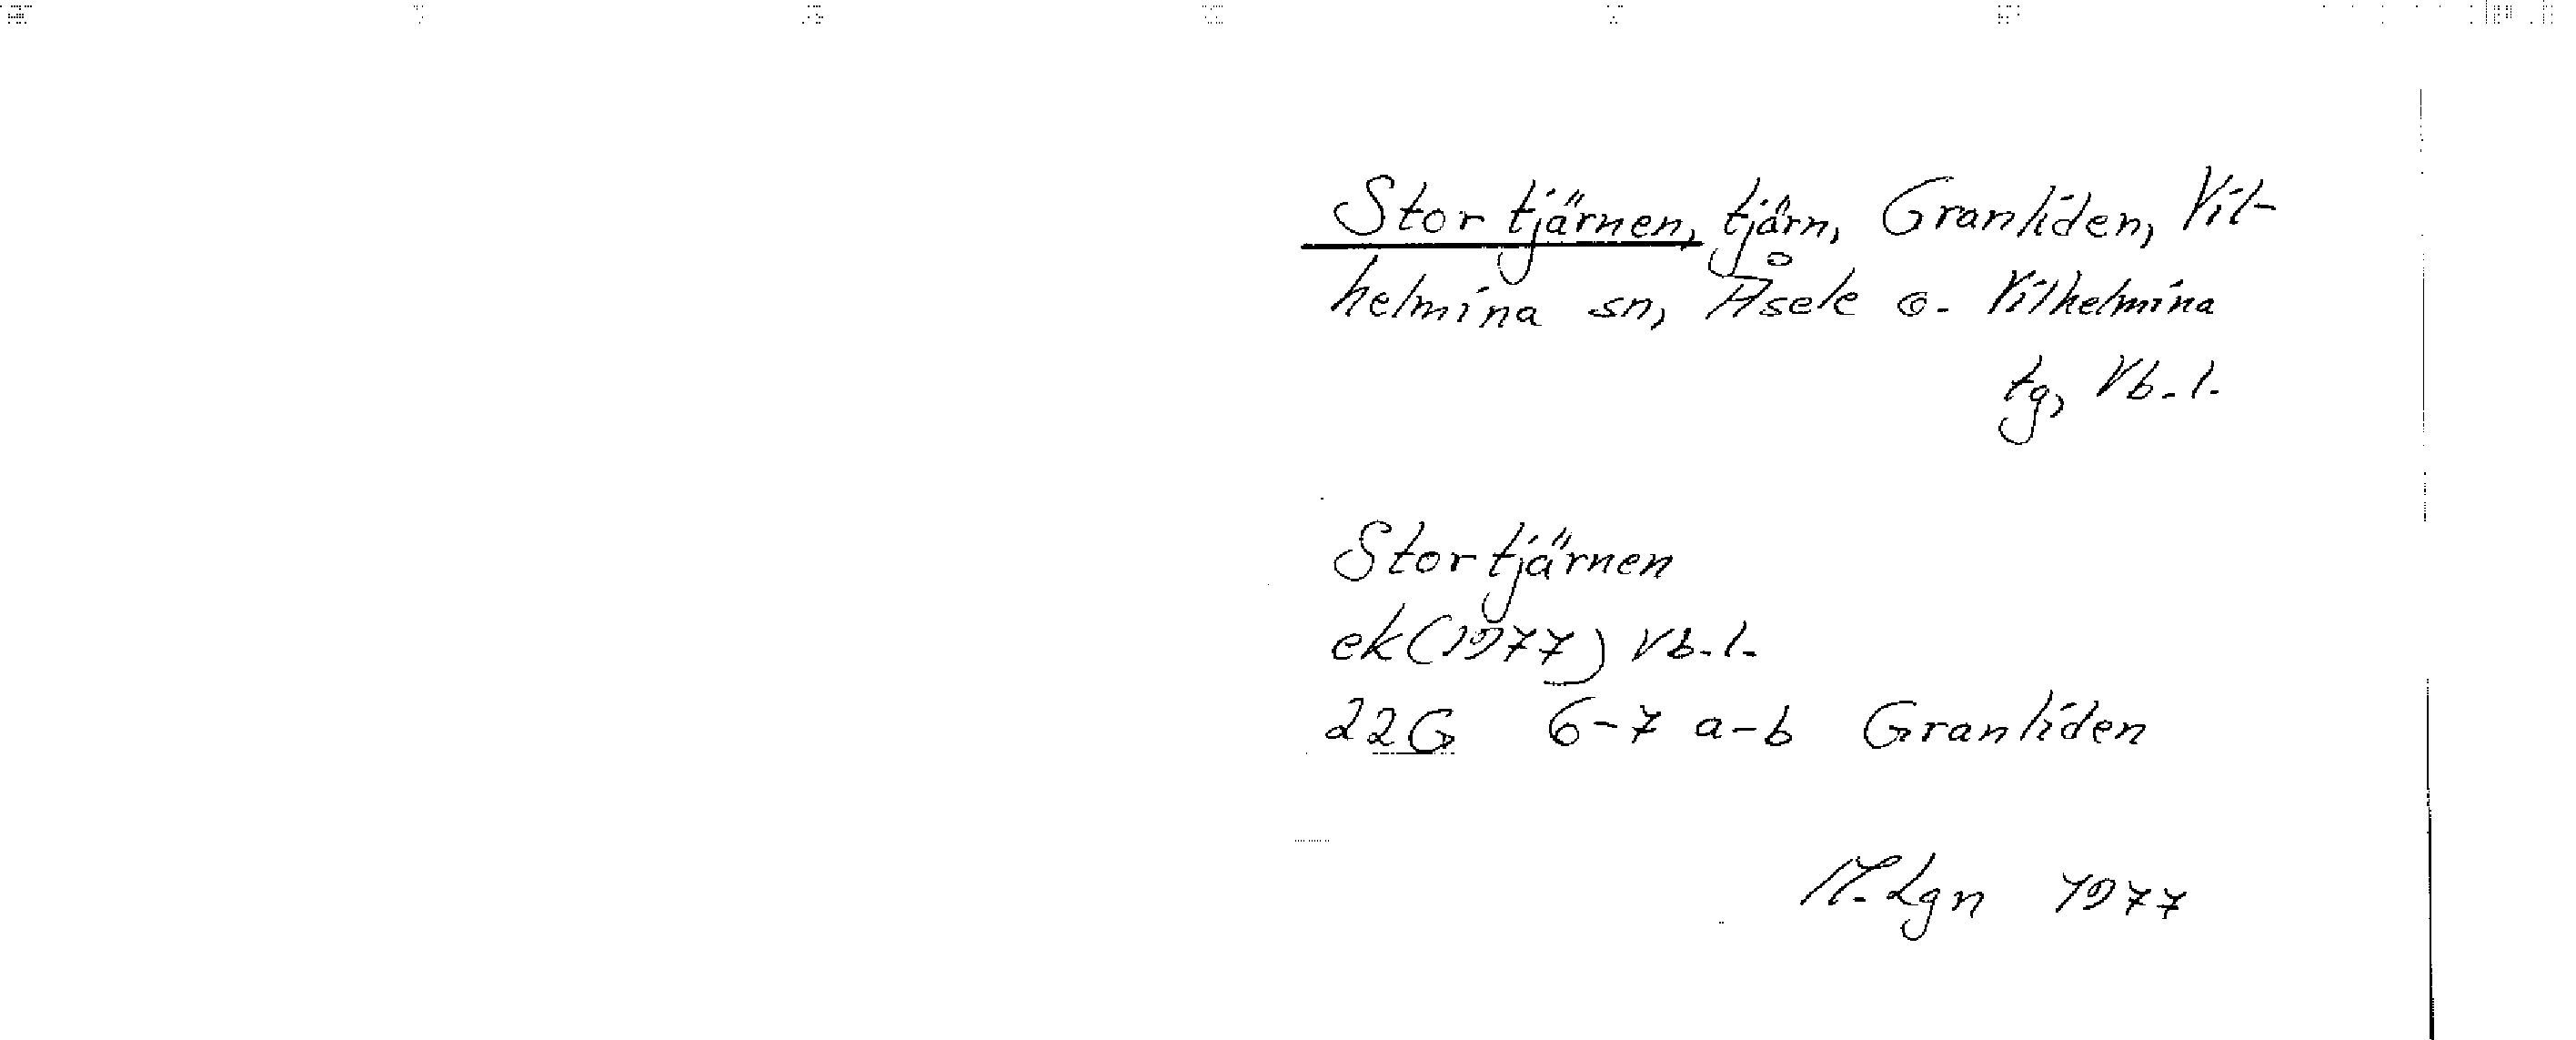 Stortjärnen, tjärn, Granliden, Vil-
helmina sn, Åsele o. Vilhelmina
tg, Vb. l.
Stortjärnen
ek (1977) Vb. l.
22G 6-7 a-b Granliden
M. Lgn 1977